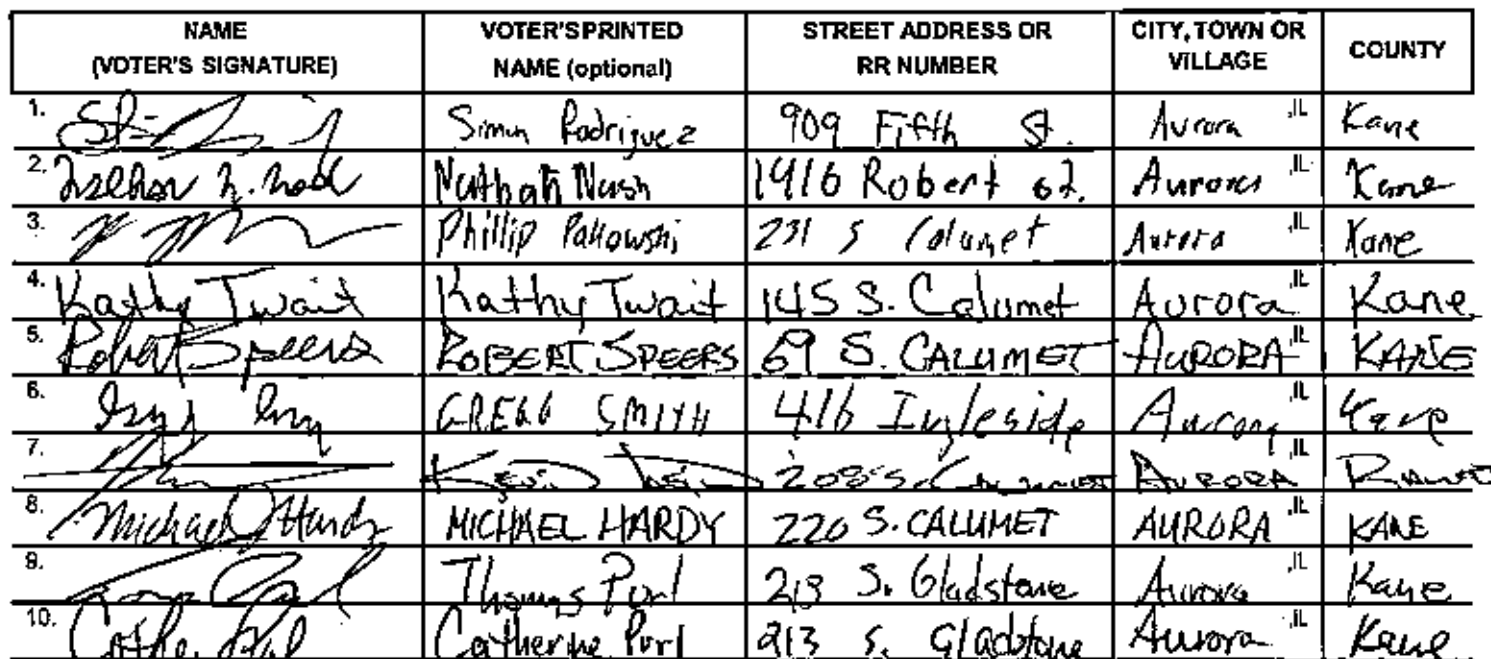 NAME (VOTER'S SIGNATURE) VOTER'S PRINTED NAME (optional) STREET ADDRESS OR RR NUMBER CITY, TOWN OR VILLAGE COUNTY
1. Simon Rodriguez 909 Fifth St. Aurora ,IL Kane
2. Nathan Nash 1916 Robert Aurora ,IL Kane
3. Phillip 231 S Calumet Aurora ,IL Kane
4. Kathy Twait Kathy Twait 145 S. Calumet Aurora ,IL Kane
5. Robert Speers ROBERT SPEERS 69 S. CALUMET AURORA ,IL KANE
6. GREGG SMITH 416 Ingleside Aurora ,IL Kane
7. Kevin 208 S. AURORA ,IL
8. Michael Hardy MICHAEL HARDY 220 S. CALUMET AURORA ,IL KANE
9. Thomas Purl 213 S. Gladstone Aurora ,IL Kane
10. Catherine Purl 213 S. Gladstone Aurora ,IL Kane